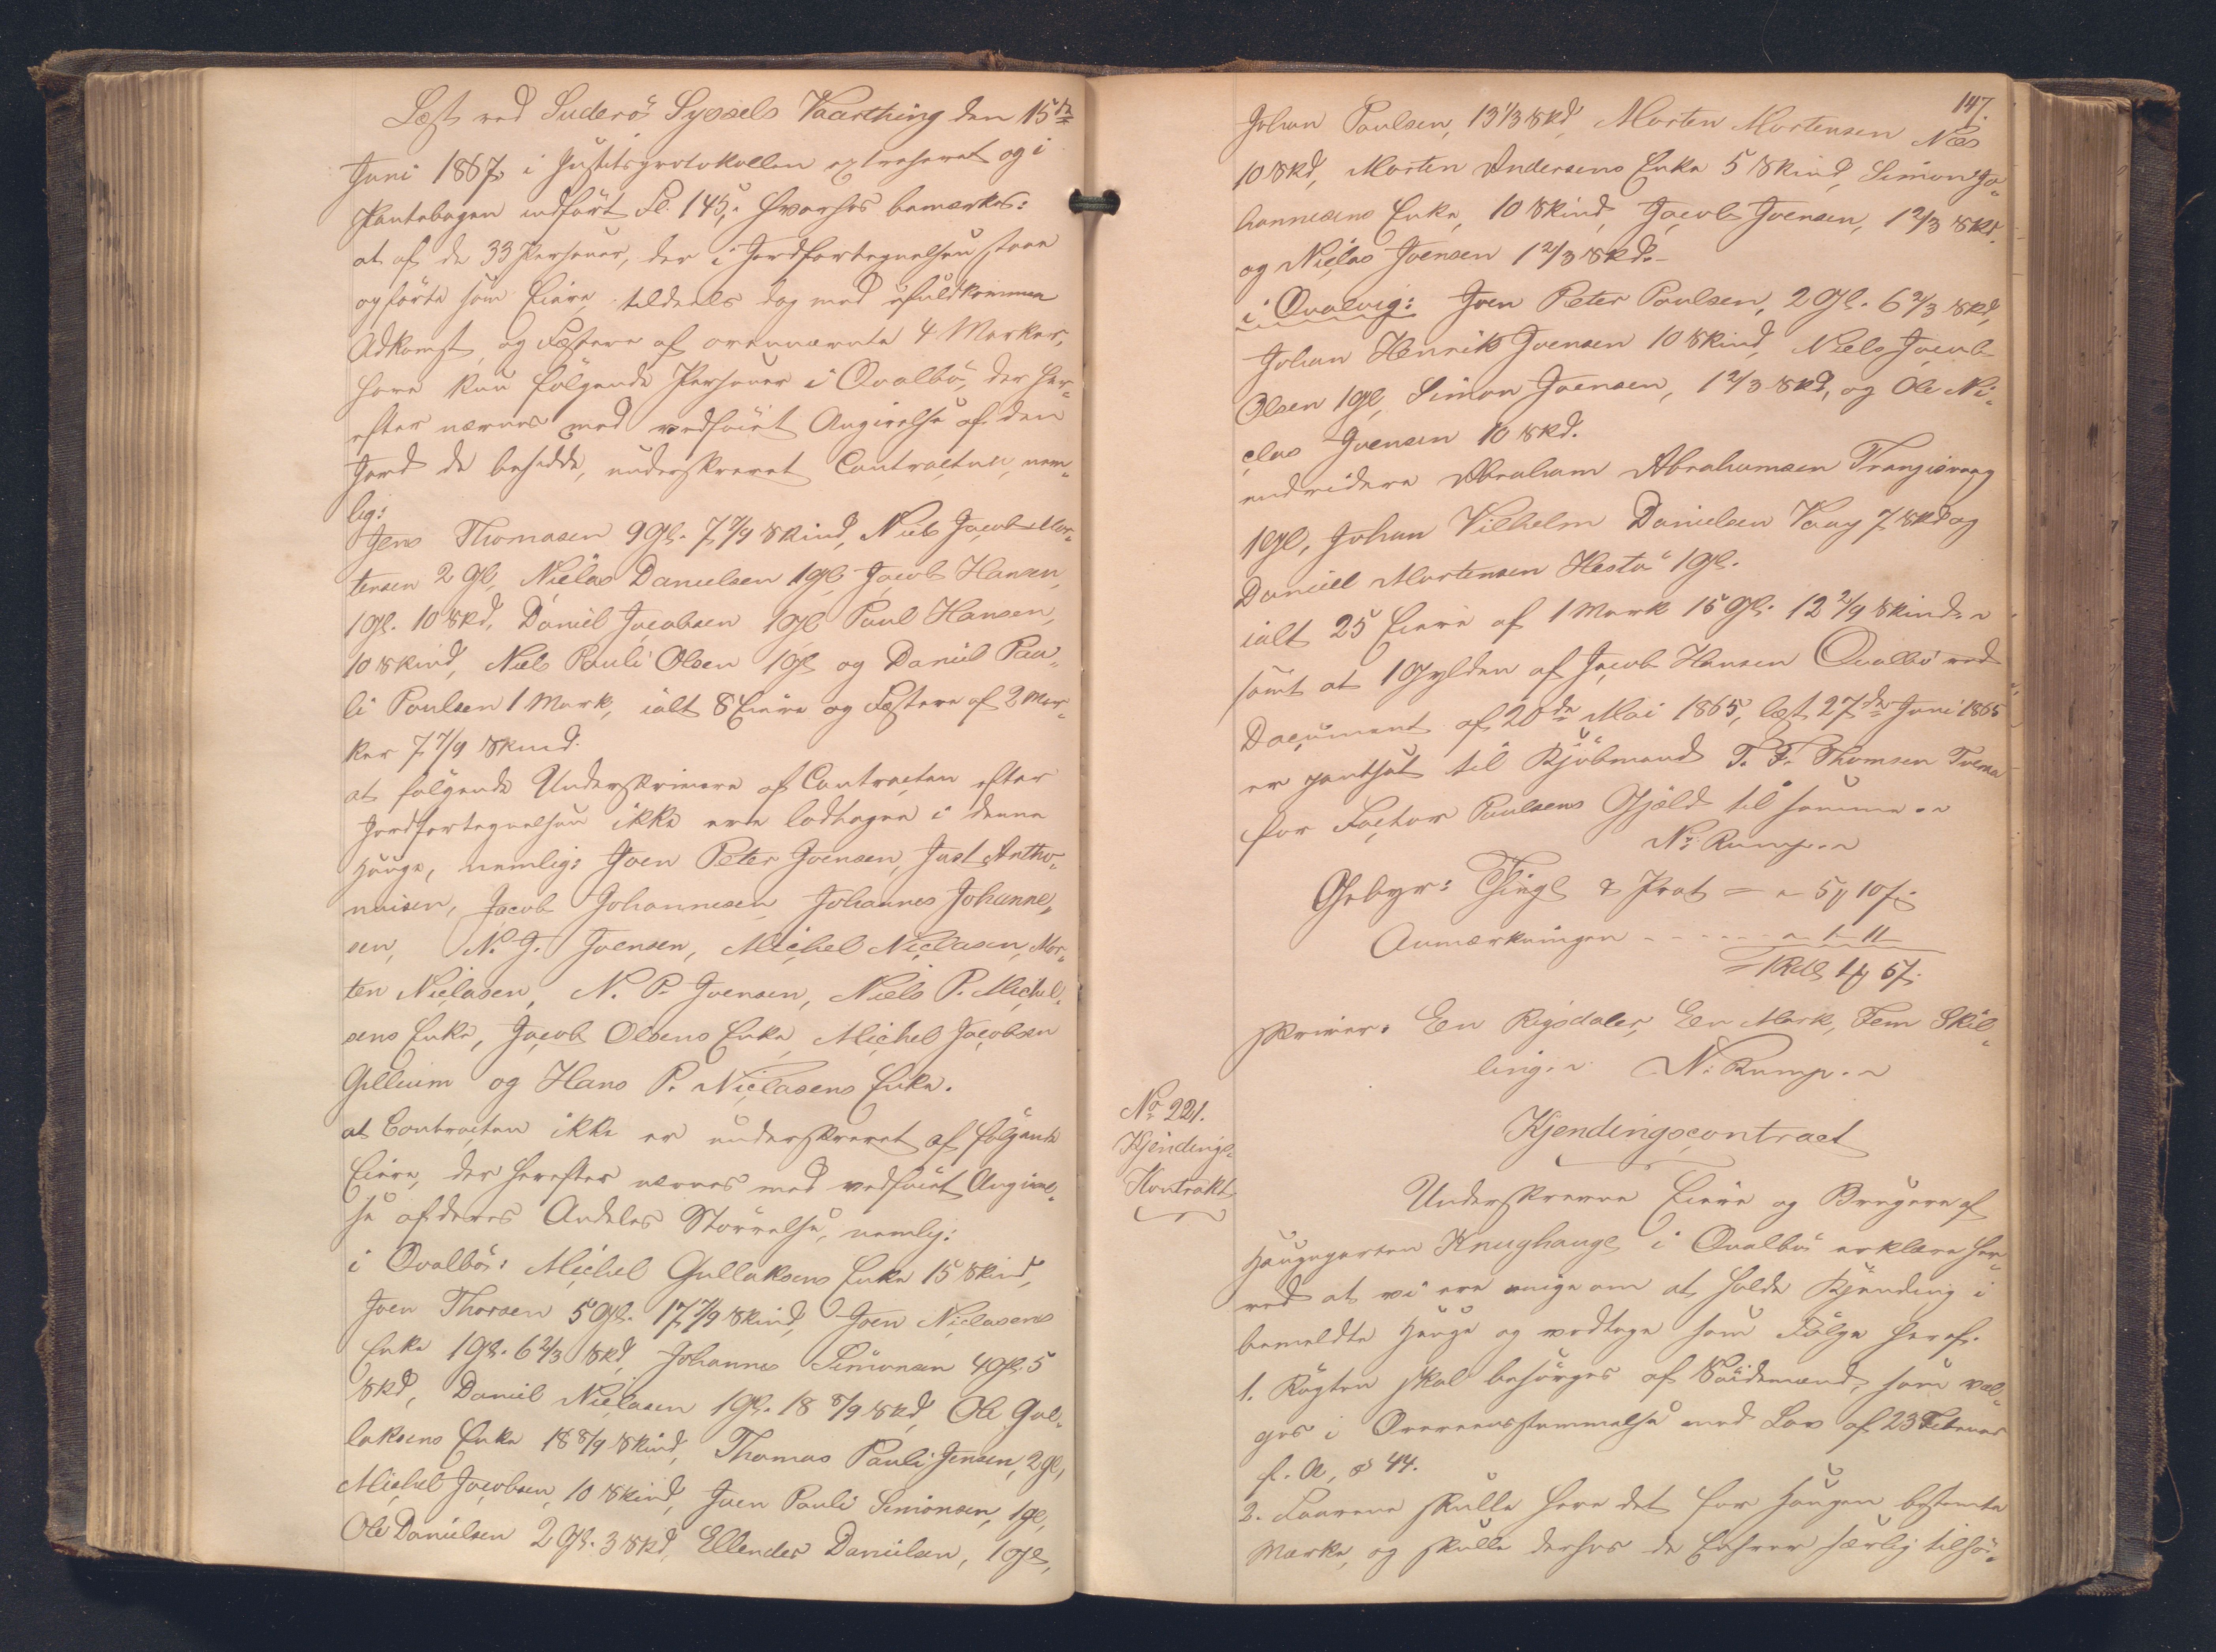 Læst ved Suderö Syssels Vaarthing den 15de
Juni 1867, i Justitsprotokollen extraheret og i
Pantebogen indført Fol. 145, hvorhos bemærkes:
at af de 33 Personer, der i Jordfortegnelsen staae
opförte som Eiere, tildeels dog med ufuldkommen
Adkomst, og Fæstere af ovennævnte 4 Marker,
have kun følgende Personer i Qvalbö, der her-
efter nævnes med vedføiet Angivelse af den
Jord de besidde, underskrevet Contracten, nem-
lig:
Jens Thomasen 9 Gl. 7 7/9 Skind, Niels Jacob Mor-
tensen 2 Gl, Niclas Danielsen 1 Gl, Jacob Hansen,
1 Gl. 10 Skd, Daniel Jacobsen 1 Gl Poul Hansen,
10 Skind, Niels Pauli Olsen 1 Gl og Daniel Pau-
li Poulsen 1 Mark, ialt 8 Eiere og Fæstere af 2 Mar-
ker 7 7/9 Skind.
at følgende Underskrivere af Contracten efter
Jordfortegnelsen ikke ere lodtagne i denne
Hauge, nemlig: Joen Peter Joensen, Just Antho-
niusen, Jacob Johannesen, Johannes Johanne-
sen, N. J. Joensen, Michel Niclasen, Mor-
ten Niclasen, N. P. Joensen, Niels P. Michel-
sens Enke, Jacob Olsens Enke, Michel Jacobsen
Gilleium og Hans P. Niclasens Enke.
at Contracten ikke er underskrevet af følgende
Eiere, der herefter nævnes med vedføiet Angivel-
se af deres Andeles Størrelse, nemlig:
i Qvalbö: Michel Gullaksens Enke 15 Skind,
Joen Thorsen 5 Gl. 17 7/9 Skind, Joen Niclasens
Enke 1 Gl. 6 2/3 Skd, Johannes Simonsen 4 Gl. 5
Skd, Daniel Niclasen 1 Gl. 18 8/9 Skd, Ole Gul-
laksens Enke 18 8/9 Skind, Thomas Pauli Jensen, 2 Gl,
Michel Jacobsen, 10 Skind, Joen Pauli Simonsen, 1 Gl,
Ole Danielsen 2 Gl. 3 Skd, Ellendes Danielsen, 1 Gl,
147.
Johan Poulsen, 13 1/3 Skd, Morten Mortensen Næs
10 Skd, Morten Andersens Enke 5 Skind, Simon Jo-
hannesens Enke, 10 Skind, Jacob Joensen, 1 2/3 Skd.
og Niclas Joensen 1 2/3 Skd.-
i Qvalvig: Joen Peter Poulsen, 2 Gl. 6 2/3 Skd,
Johan Henrik Joensen 10 Skind, Niels Jacob
Olsen 1 Gl, Simon Joensen, 1 2/3 Skd, og Ole Ni-
clas Joensen 10 Skd.
endvidere Abraham Abrahamsen Trangisvaag
1 Gl, Johan Vilhelm Danielsen Vaag 7 Skd og
Daniel Mortensen Hestö 1 Gl.
ialt 25 Eiere af 1 Mark 15 Gl. 12 2/9 Skind.
samt at 1 Gylden af Jacob Hansen Qvalbö ved
Document af 20de Mai 1865, læst 27de Juni 1865
er pantsat til Kjöbmand T. F. Thomsen Tveraa
for Factor Poulsens Gjæld til samme.
N. Rump.
Gebyr: Thingl & Prot = - 5 # 10 ß
Anmærkningen - - - - - 1 - 11 -
= 1 Rdl 1 # 5 ß.
skriver: Een Rigsdaler, Een Mark, Fem Skil-
ling. N. Rump.
No 221.
Kjendings-
Kontrakt
Kjendingscontract
Underskrevne Eiere og Brugere af
Haugeparten Knughauge i Qvalbö erklære her-
ved at vi ere enige om at holde Kjending i
bemeldte Hauge og vedtage som Følge heraf.
1. Røgten skal besørges af Söidemænd, som væl-
ges i Overeensstemmelse med Lov af 23 Februar
f. A, § 44.
2. Faarene skulle have det for Haugen bestemte
Mærke, og skulle derhos de Enhver særlig tilhø-